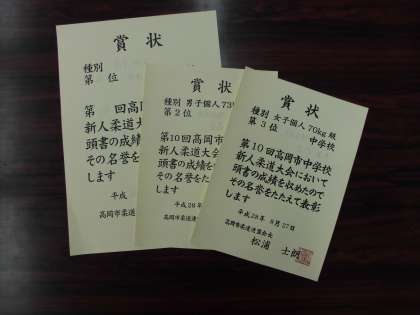 賞状
種別
第 位
第 回高岡
新人柔道大会
頭書の成績を
その名誉をた
します
平成
高岡市柔道
賞状
種別 男子個人73
第2位
第10回高岡
新人柔道大会
頭書の成績を
その名誉をた
します
平成28年
高岡市柔道連盟
賞状
種別 女子個人70kg級
第3位 中学校
第10回高岡市中学校
新人柔道大会において
頭書の成績を収めたので
その名誉をたたえて表彰
します
平成28年 8月27日
高岡市柔道連盟会長
松浦 士朗